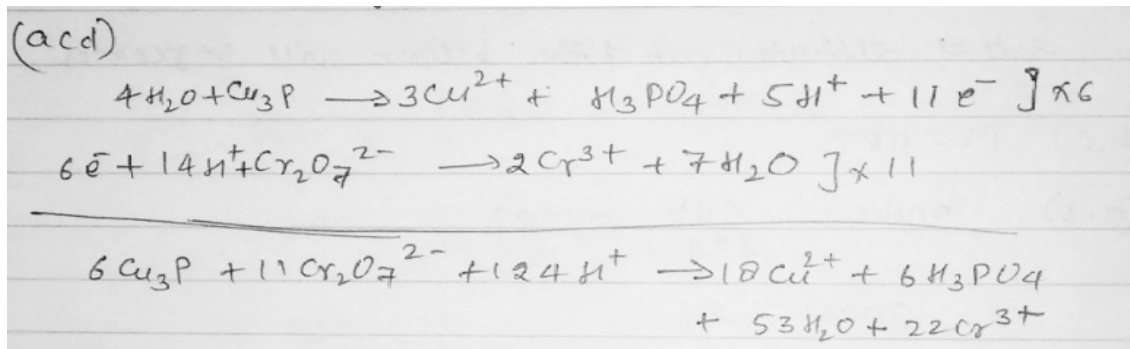 (acd)
4H₂O + Cu₃P → 3Cu²⁺ + H₃PO₄ + 5H⁺ + 11e⁻ ] × 6
6e⁻ + 14H⁺ + Cr₂O₇²⁻ → 2Cr³⁺ + 7H₂O ] × 11
6Cu₃P + 11Cr₂O₇²⁻ + 124H⁺ → 18Cu²⁺ + 6H₃PO₄
+ 53H₂O + 22Cr³⁺